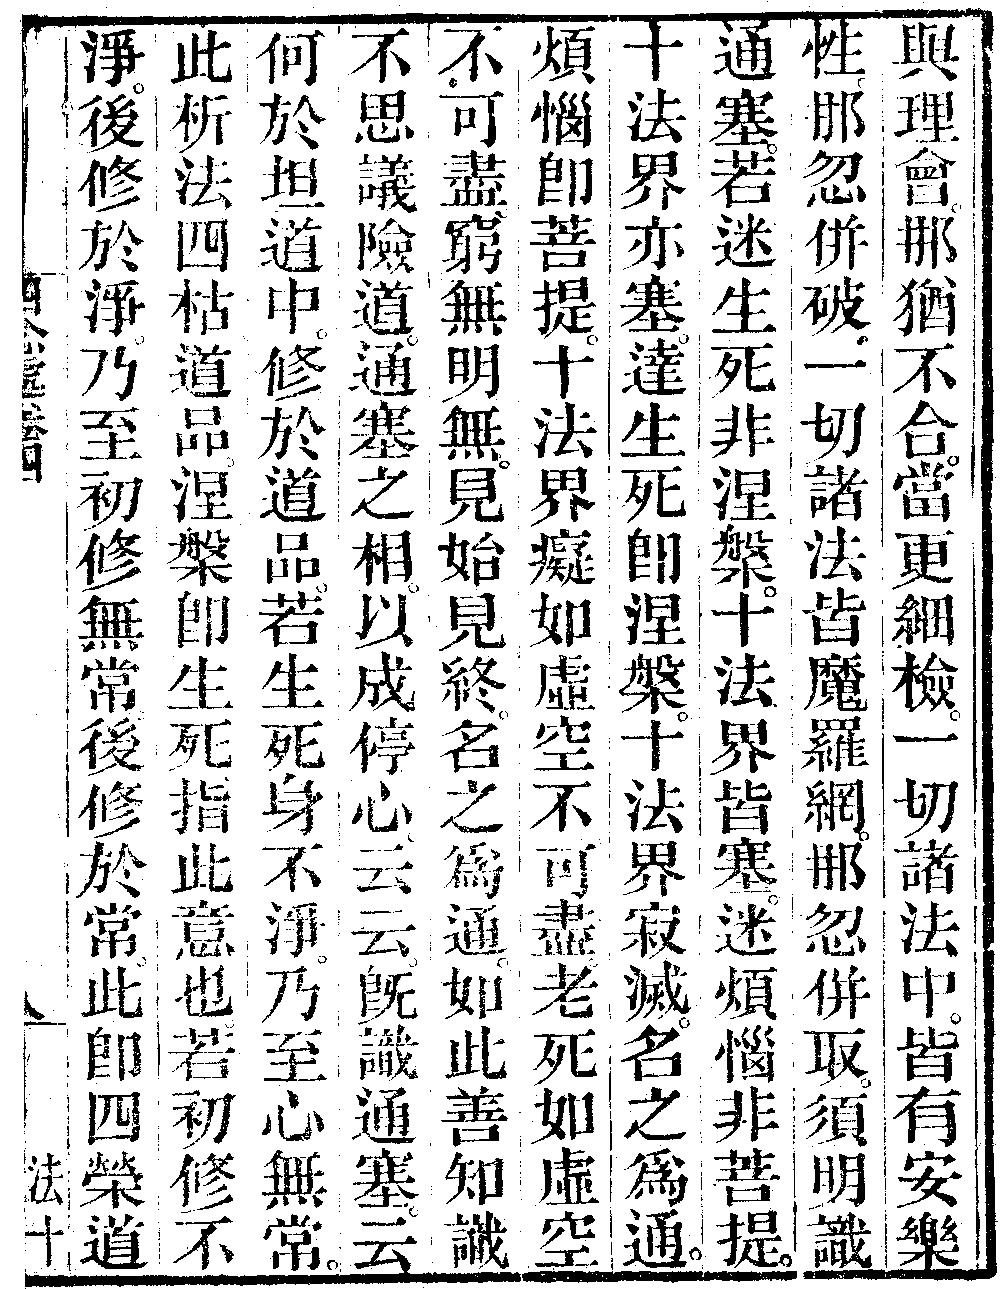 與理會。那猶不合。當更細檢。一切諸法中。皆有安樂
性。那忽併破。一切諸法皆魔羅網。那忽併取。須明識
通塞。若迷生死非涅槃。十法界皆塞。迷煩惱非菩提。
十法界亦塞。達生死卽涅槃。十法界寂滅。名之爲通。
煩惱卽菩提。十法界癡如虛空不可盡。老死如虛空
不可盡。窮無明無。見始見終。名之爲通。如此善知識
不思議險道。通塞之相。以成停心。云云。旣識通塞。云
何於坦道中。修於道品。若生死身不淨。乃至心無常。
此析法四枯道品。涅槃卽生死指此意也。若初修不
淨。後修於淨。乃至初修無常後修於常。此卽四榮道
四念處卷四
八
法十